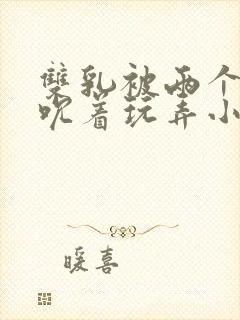 双乳被两个
吮着玩弄小
暖喜